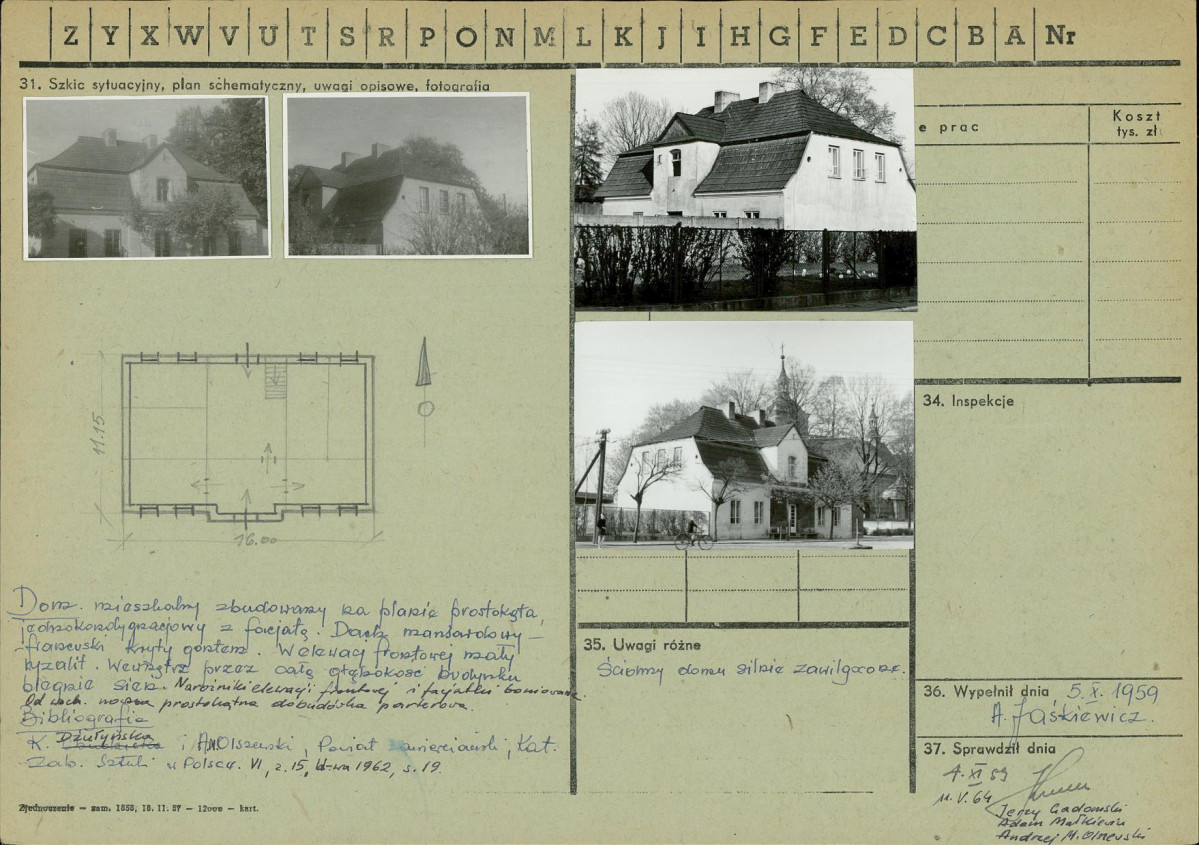 Z Y X W V U T S R P O N M L K J I H G F E D C B A Nr
31. Szkic sytuacyjny, plan schematyczny, uwagi opisowe, fotografia
e prac
Koszt
tys. zł
11.15
16.00
34. Inspekcje
Dom mieszkalny zbudowany na planie prostokąta,
jednokondygnacjowy z facjatą. Dach mansardowy –
francuski kryty gontem. W elewacji frontowej mały
ryzalit. Wewnątrz przez całą głębokość budynku
biegnie sień. Narożniki elewacji frontowej i facjatki boniowane.
Od wsch. prostokątna dobudówka parterowa.
Bibliografia
K. Dżułyńska i A.M. Olszewski, Powiat, Kat.
Zab. Sztuki w Polsce. VI, z. 15, W-wa 1962, s. 19.
Zjednoczenie – zam. 1858, 18. 11. 57 – 12000 – kart.
35. Uwagi różne
Ściany domu silnie zawilgocone.
36. Wypełnił dnia 5.X.1959
A. Jaśkiewicz.
37. Sprawdził dnia
4.XI 59
11.V.64
Jerzy Gadomski
Adam Małkiewicz
Andrzej M. Olszewski